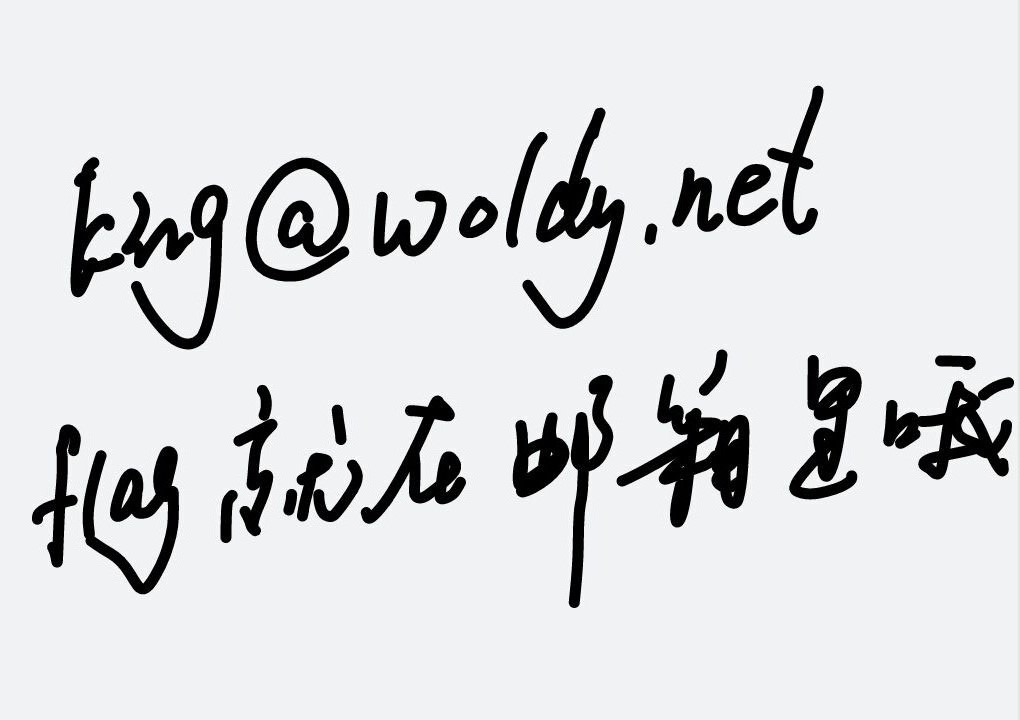 king@woldy.net
flag就在邮箱里哦